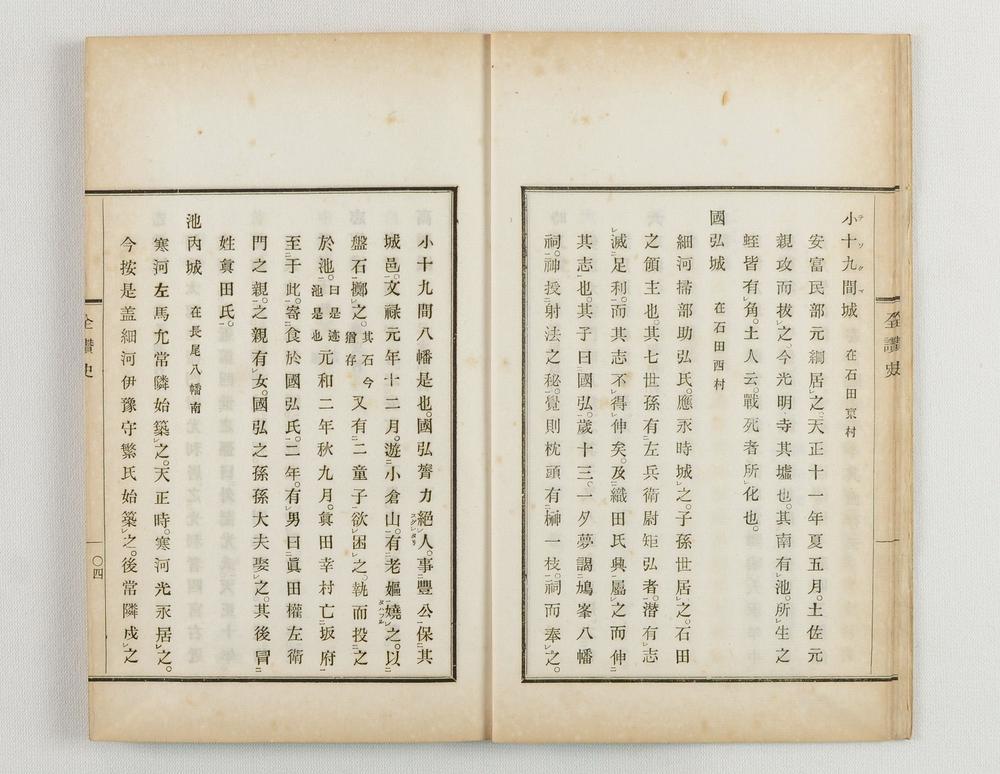 全讃史
小十九間城 在石田東村
安富民部元綱居之。天正十一年夏五月。土佐元
親攻而拔之。今光明寺其墟也。其南有池。所生之
蛭皆有角。土人云。戰死者所化也。
國弘城 在石田西村
細河掃部助弘氏。應永時城之。子孫世居之。石田
之領主也。其七世孫有左兵衛尉矩弘者。潜有志
滅足利。而其志不得伸矣。及織田氏興屬之而伸
其志也。其子曰國弘。歲十三。一夕夢謁鳩峯八幡
祠。神授射法之秘。覺則枕頭有榊一枝。祠而奉之。
小十九間八幡是也。國弘膂力絕人。事豐公保其
城邑。文祿元年十二月。遊小倉山。有老嫗嬈之。以
盤石擲之。其石今猶存又有二童子欲困之。執而投之
於池。曰是迹池是也元和二年秋九月。眞田幸村亡坂府
至于此。寄食於國弘氏。二年。有男曰眞田權左衛
門之親。之親有女。國弘之孫孫大夫娶之。其後冒
姓眞田氏。
池內城 在長尾八幡南
寒河左馬允常隣始築之。天正時。寒河光永居之。
今按是盖細河伊豫守繁氏始築之。後常隣戍之
全讃史
〇四